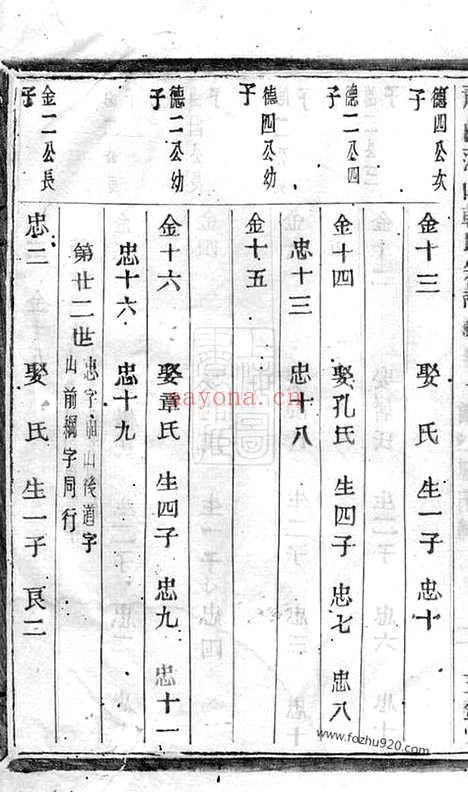 德四公次子
金十三 娶 氏 生一子 忠十
德二公四子
金十四 娶孔氏 生四子 忠七 忠八
忠十三 忠十八
德四公幼子
金十五
德二公幼子
金十六 娶章氏 生四子 忠九 忠十一
忠十六 忠十九
第廿二世 忠字 山後道字
山前綱字同行
金一公長子
忠三 娶 氏 生一子 良二
nayona.cn
www.fozhu920.com